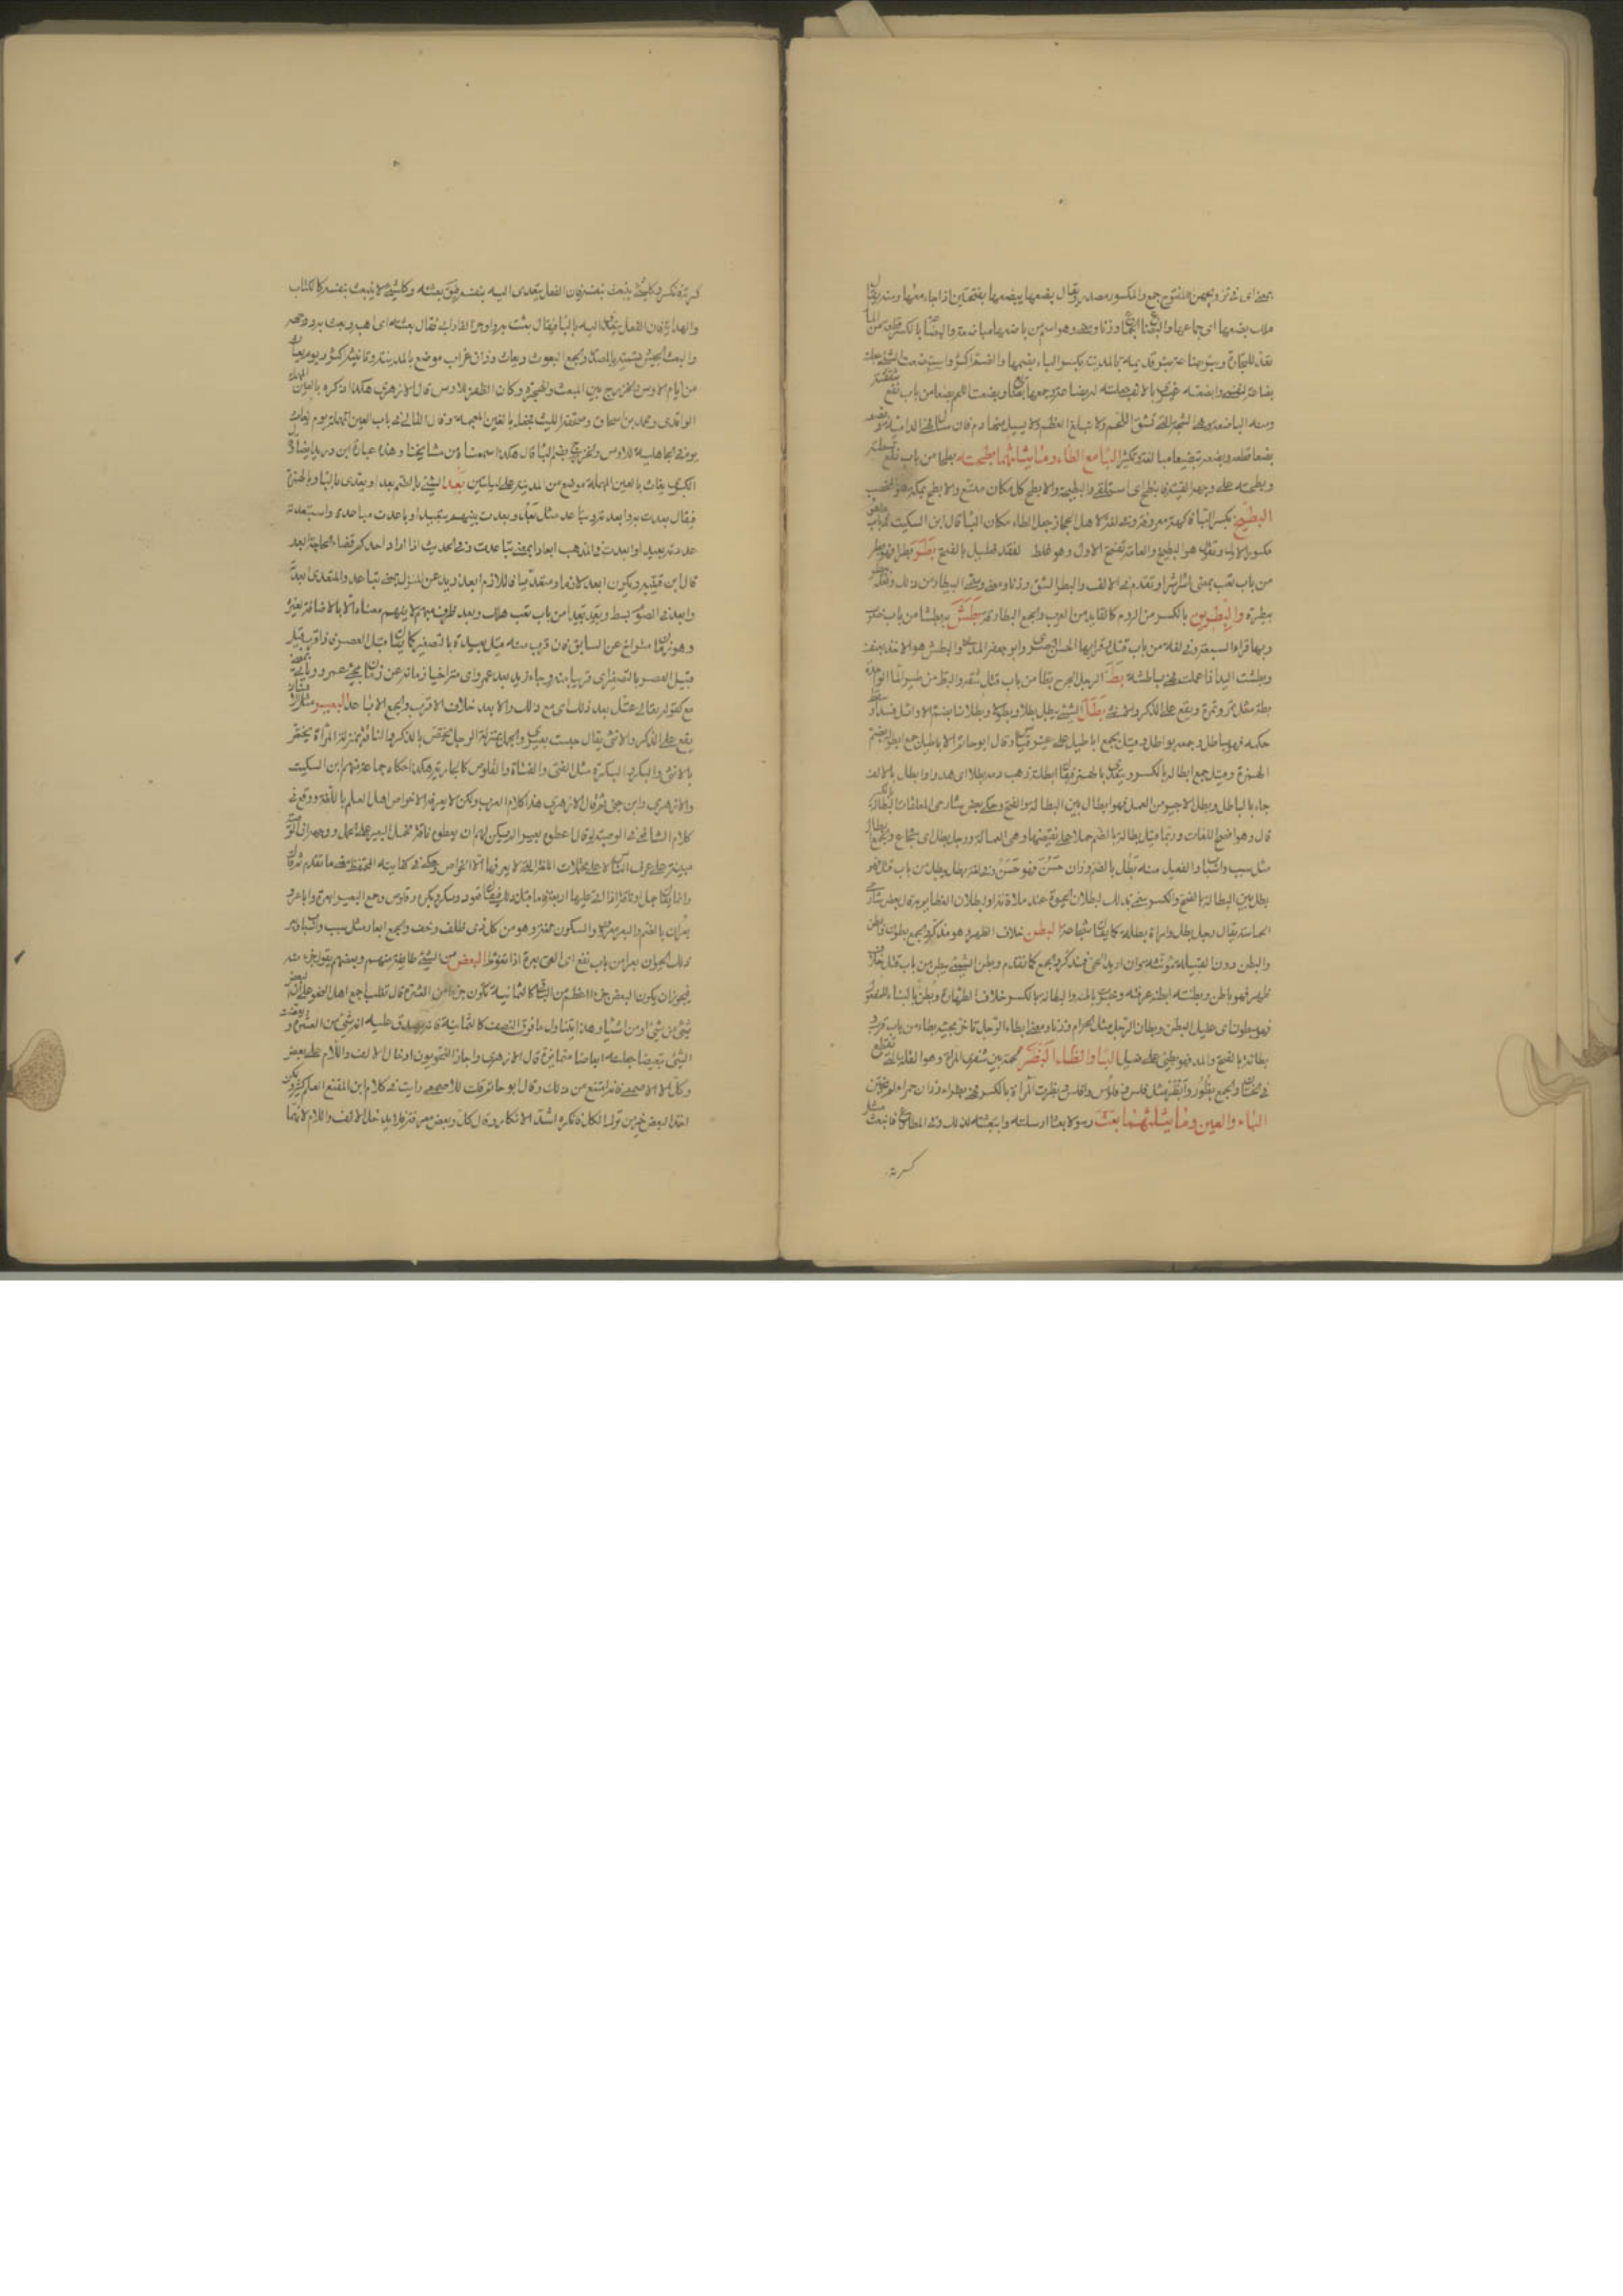 ملك بضعها اى جماعها والبضاع الجماع وزنا ومعنى وهو اسم من باضعها مباضعة والبضاعة بالكسر قطعة من المال
تعد للتجارة وبئر بضاعة بئر قديمة بالمدينة بكسر الباء وضمها والضم اكثر واستبضعت الشئ جعلته
بضاعة لنفسى وابضعته غيرى بالالف جعلته له بضاعة وجمعها بضائع وبضعت اللحم بضعا من باب نفع شققته
ومنه الباضعة وهى الشجة التى تشق اللحم ولا تبلغ العظم ولا يسيل منها دم فان سال فهى الدامية وبضعه
بضعا قطعه وبضعه تبضيعا مبالغة وتكثير الباء مع الطاء وما يثلثهما بطحته بطحا من باب نفع بسطته
وبطحته على وجهه القيته فانبطح اى استلقى والبطيحة والابطح كل مكان متسع والابطح بمكة هو المحصب
البطيخ بكسر الباء فاكهة معروفة وفى لغة لاهل الحجاز جعل الطاء مكان الباء قال ابن السكيت فى باب ما هو
مكسور الاول وتقول هو البطيخ والعامة تفتح الاول وهو غلط لفقد فعليل بالفتح بطر بطرا فهو بطر
من باب تعب بمعنى اشر اشرا وتقدم فى الالف والبطر الشق وزنا ومعنى وسمى البيطار من ذلك وفعله بيطر
بيطرة والبطريق بالكسر من الروم كالقايد من العرب والجمع البطارقة بطش به بطشا من باب ضرب
وبها قراء السبعة وفى لغة من باب قتل وقرا بها الحسن البصرى وابو جعفر المدنى والبطش هو الاخذ بعنف
وبطشت اليد اذا عملت فهى باطشة بط الرجل الجرح بطا من باب قتل شقه والبط من طير الماء الواحدة
بطة مثل تمر وتمرة ويقع على الذكر والانثى بطل الشئ يبطل بطلا وبطولا وبطلانا بضم الاوائل فسد او سقط
حكمه فهو باطل وجمعه بواطل وقيل يجمع اباطيل على غير قياس وقال ابو حاتم الاباطيل جمع ابطولة بضم
الهمزة وقيل جمع ابطالة بالكسر ويتعدى بالهمزة فيقال ابطلته وذهب دمه بطلا اى هدرا وابطل بالالف
جاء بالباطل وبطل الاجير من العمل فهو بطال بين البطالة بالفتح وحكى بعض شارحى المعلقات البطالة بالكسر
قال وهو افصح اللغات وربما قيل بطالة بالضم حملا على نقيضها وهى العمالة ورجل بطل اى شجاع والجمع ابطال
مثل سبب واسباب والفعل منه بطل بالضم وزان حسن فهو حسن وفى لغة بطل يبطل من باب قتل فهو
بطل بين البطالة بالفتح والكسر سمى بذلك لبطلان الحيوة عند ملاقاته او لبطلان العظائم به قال بعض شارحى
الحماسة يقال رجل بطل وامراة بطلة كما يقال شجاعة البطن خلاف الظهر وهو مذكر والجمع بطون وابطن
والبطن دون القبيلة مؤنثة وان اريد الحى فمذكر والجمع كما تقدم وبطن الشئ يبطن من باب قتل خلاف
ظهر فهو باطن وبطنته ابطنه عرفته وخبرت باطنه والبطانة بالكسر خلاف الظهارة وبطن بالبناء للمفعول
فهو مبطون اى عليل البطن وبطان الرجل مثل الحزام وزنا ومعنى ابطاء الرجل تاخر مجيئه وبطاء من باب قرب
بطاءة بالفتح والمد فهو بطئ على فعيل الباء والظاء البظر لحمة بين شفرى المراة وهو القلفة التى تقطع
فى الختان والجمع بظور وابظر مثل فلس وفلوس وافلس وبظرت المراة بالكسر فهى بظراء وزان حمراء لم تختن
الباء والعين وما يثلثهما بعثت رسولا بعثا ارسلته وابتعثته كذلك وفى المطاوع فانبعث مثل
كسرته
كسرته فانكسر وكل شئ ينبعث بنفسه فان الفعل يتعدى اليه بنفسه فيقال بعثته وكل شئ لا ينبعث بنفسه كالكتاب
والهدية فان الفعل يتعدى اليه بالباء فيقال بعثت به واوجز الفارابى فقال بعثته اى اهبه وبعث به وجهه
والبعث الجيش تسمية بالمصدر والجمع البعوث وبعاث وزان غراب موضع بالمدينة وتانيثه اكثر ويوم بعاث
من ايام الاوس والخزرج بين المبعث والهجرة وكان الظفر للاوس قال الازهرى هكذا ذكره بالعين المهملة
الواقدى ومحمد بن اسحاق وصحفه الليث فجعله بالغين المعجمة وقال القالى فى باب العين المهملة يوم بعاث
يوم فى الجاهلية للاوس والخزرج بضم الباء قال هكذا سمعناه من مشايخنا وهذه عبارة ابن دريد ايضا وقال
البكرى بعاث بالعين المهملة موضع من المدينة على ليلتين بعد الشئ بالضم بعدا ويتعدى بالباء وبالهمزة
فيقال بعدت به وابعدته وتباعد مثل بعد وبعدت بينهم تبعيدا وباعدت مباعدة واستبعدته
عددته بعيدا وابعدت فى المذهب ابعادا بمعنى تباعدت وفى الحديث اذا اراد احدكم قضاء الحاجة ابعد
قال ابن قتيبة ويكون ابعد لازما ومتعديا فاللازم ابعد زيد عن المنزل بمعنى تباعد والمتعدى ابعدته
وابعد فى السوم شط وبعد بعدا من باب تعب هلك وبعد ظرف مبهم لا يفهم معناه الا بالاضافة لغيره
وهو زمان متراخ عن السابق فان قرب منه قيل بعيده بالتصغير كما يقال قبل العصر فاذا قرب قيل
قبيل العصر بالتصغير اى قريبا منه وجاء زيد بعد عمرو اى متراخيا زمانه عن زمان مجئ عمرو وتاتى بمعنى
مع كقوله تعالى عتل بعد ذلك اى مع ذلك والابعد خلاف الاقرب والجمع الاباعد البعير مثل الانسان
يقع على الذكر والانثى يقال حلبت بعيرى والجمل بمنزلة الرجل يختص بالذكر والناقة بمنزلة المراة تختص
بالانثى والبكر والبكرة مثل الفتى والفتاة والقلوص كالجارية هكذا حكاه جماعة منهم ابن السكيت
والازهرى وابن جنى ثم قال الازهرى هذا كلام العرب ولكن لا يعرفه الا خواص اهل العلم باللغة ووقع فى
كلام الشافعى فى الوصية لو قال اعطوه بعيرا لم يكن لهم ان يعطوه ناقة فحمل البعير على الجمل ووجهه ان الوصية
مبنية على عرف الناس لا على محتملات اللغة التى لا يعرفها الا الخواص وحكى فى كفاية المتحفظ معنى ما تقدم ثم قال
وانما يقال جمل او ناقة اذا اربعا فاما قبل ذلك فيقال قعود وبكر وبكرة وقلوص وجمع البعير ابعرة واباعر و
بعران بالضم والبعر معروف والسكون لغة وهو من كل ذى ظلف وخف والجمع ابعار مثل سبب واسباب وبعر
ذلك الحيوان بعرا من باب نفع القى بعره البعض من الشئ طائفة منهم وبعضهم يقول جزء منه
فيجوز ان يكون البعض جزءا اعظم من الباقى كالثمانية تكون جزءا من العشرة قال ثعلب اجمع اهل النحو على ان البعض
شئ من شئ او من اشياء وهذا يتناول ما فوق النصف كالثمانية فانه يصدق عليه انه شئ من العشرة وبعضت
الشئ تبعيضا جعلته ابعاضا متمايزة قال الازهرى واجاز النحويون ادخال الالف واللام على بعض
وكل الا الاصمعى فانه امتنع من ذلك وقال ابو حاتم قلت للاصمعى رايت فى كلام ابن المقفع العلم كثير ولكن
اخذ البعض خير من ترك الكل فانكره اشد الانكار وقال كل وبعض معرفة فلا يدخلها الالف واللام لانهما